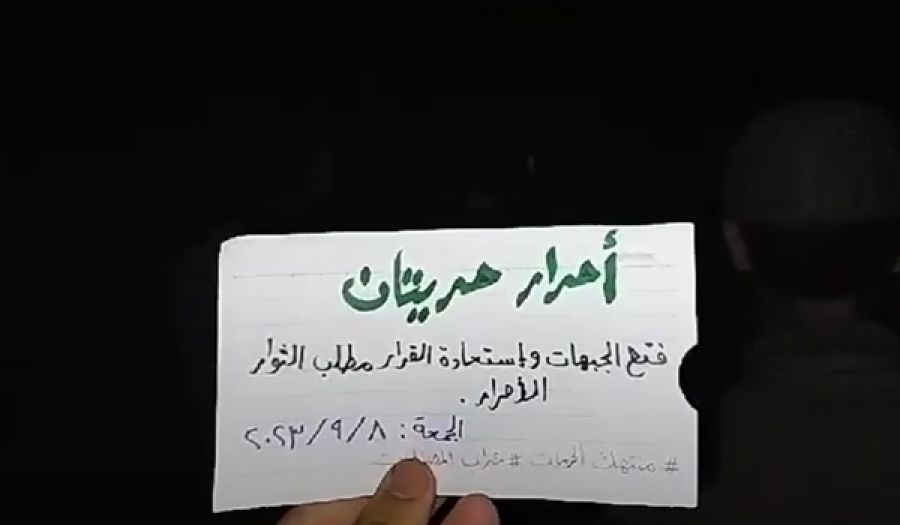 أحرار حربنان
فتح الجبهات وإستعادة القرار مطلب الثوار
الأحرار .
الجمعة : ٢٠٢٣/٩/٨
# منتهك الحرمات #